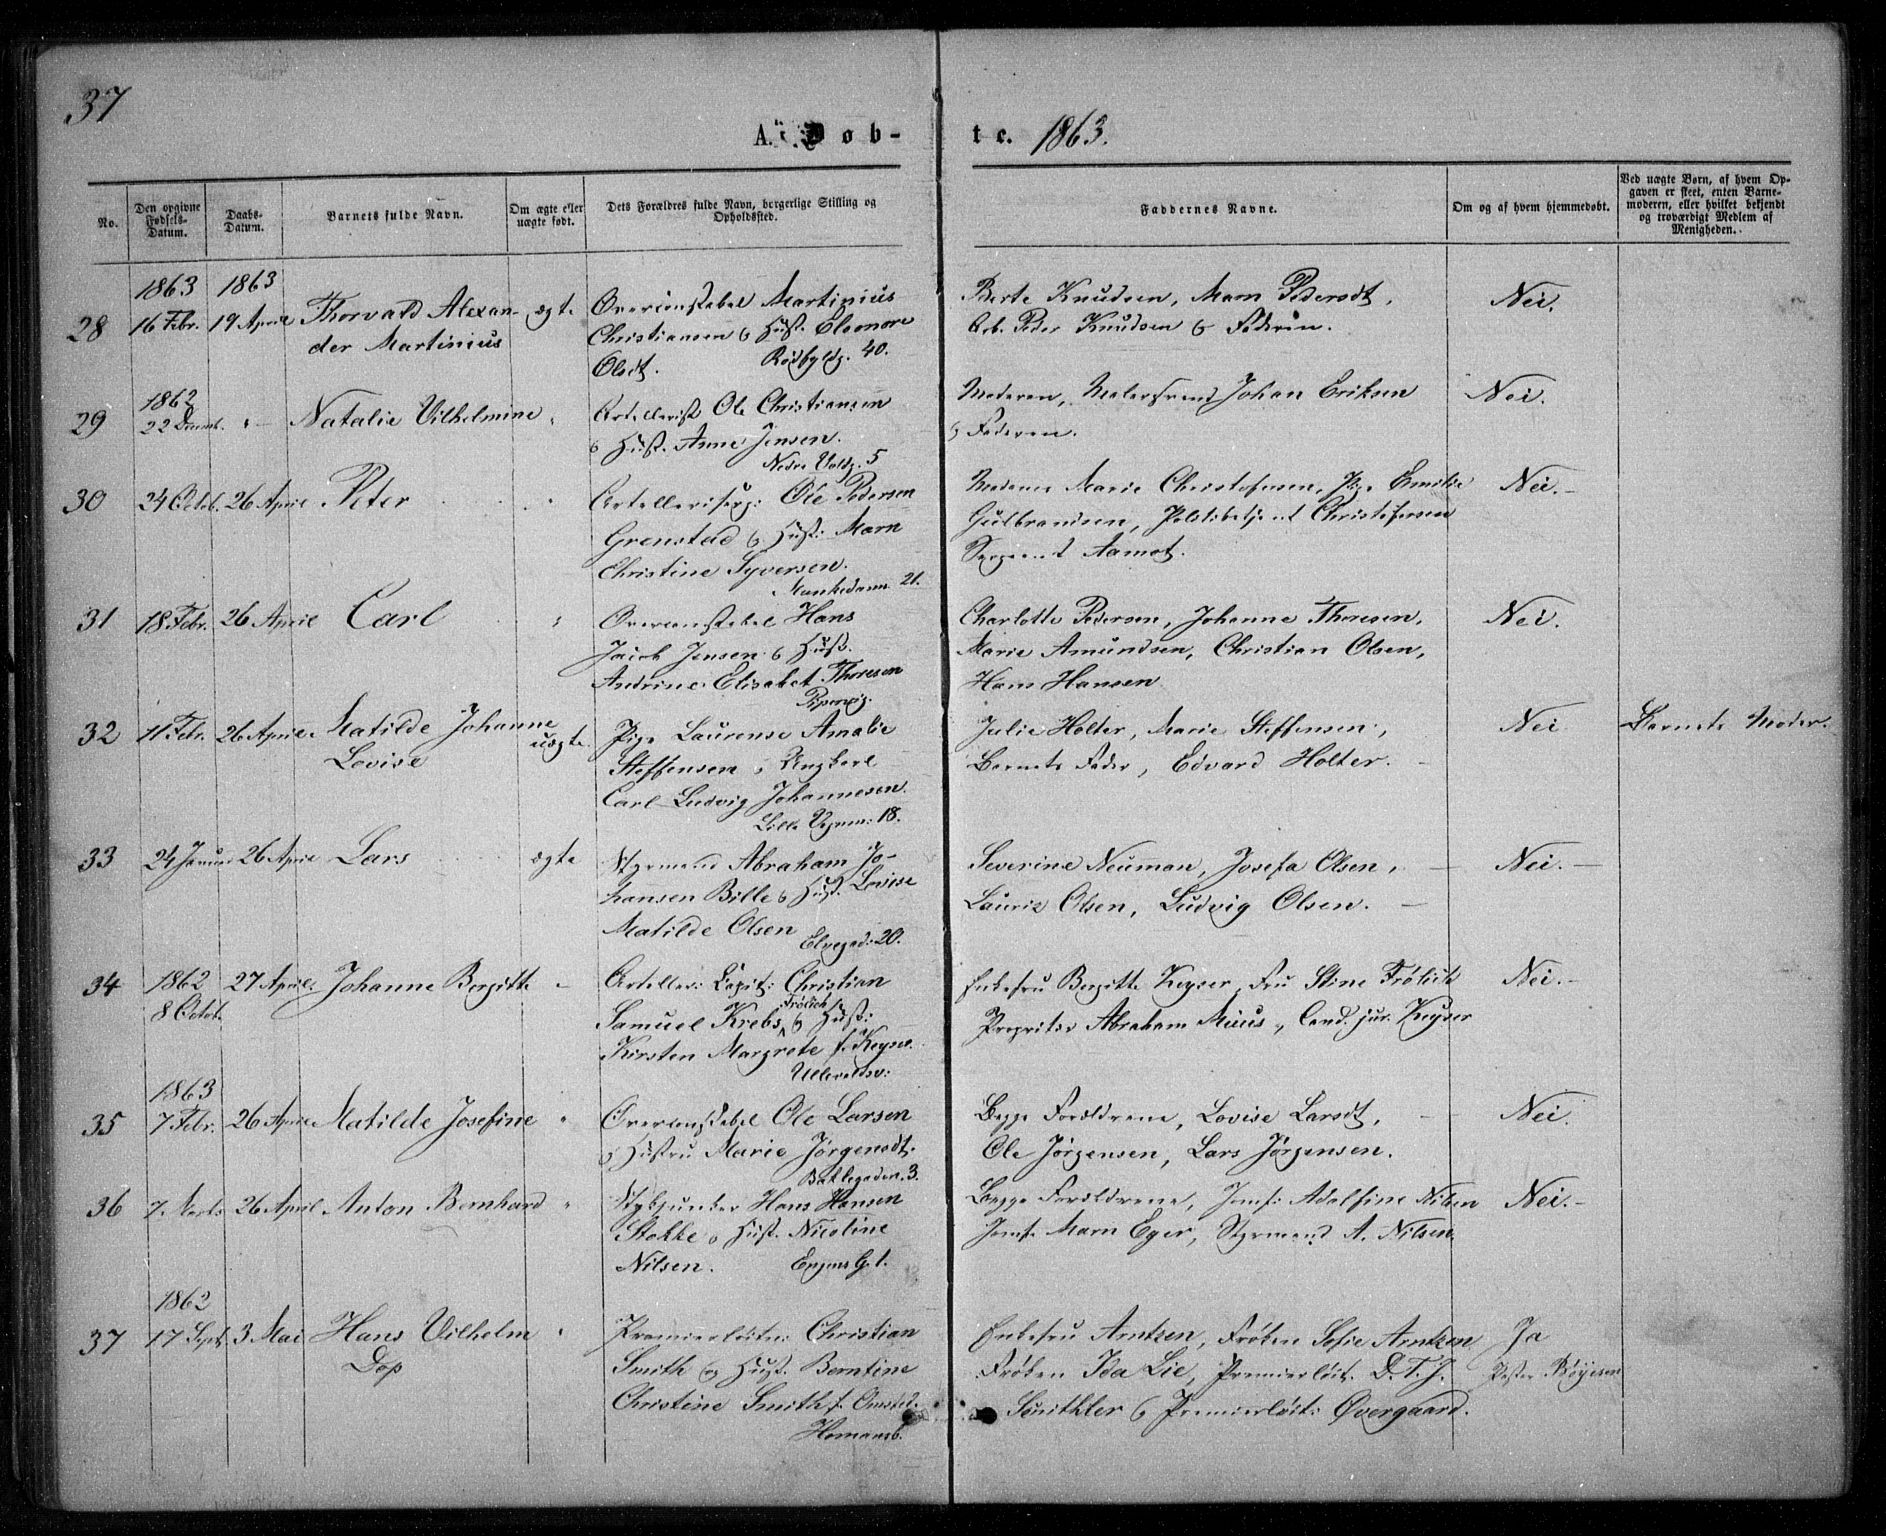 37
A. Døb-
te. 1863.
No.
Den opgivne Fødsels-Datum.
Daabs-Datum.
Barnets fulde Navn.
Om ægte eller uægte født.
Dets Forældres fulde Navn, borgerlige Stilling og Opholdssted.
Faddernes Navne.
Om og af hvem hjemmedøbt.
Ved uægte Børn, af hvem Opgaven er skeet, enten Barnemoderen, eller hvilket bekjendt og troværdigt Medlem af Menigheden.
1863 1863
28 16 Febr. 19 April Thorvald Alexan- ægte Overconstabel Martinius
der Martinius Christiansen & Hust. Eleonore
Olsdt. 40.
Berte Knudsen, Marn Pedersdt, Nei.
Arb. Peder Knudsen & Faderen.
1862
29 22 Decemb. " — Natalie Vilhelmine " Artellerist Ole Christiansen
& Hust. Anne Jensen.
Nedre Voldg. 5
Moderen, Malersvend Johan Eriksen Nei.
& Faderen.
30 24 Octob. 26 April Peter " Artelleriserg: Ole Pedersen
Grenstad & Hust: Marn
Christine Syversen.
Munkedamm. 21.
Madame Marie Christofersen, Pige Emilie Nei. —
Gulbrandsen, Politibetjent Christofersen
Sergeant Aamot.
31 18 Febr. 26 April Carl " Overconstabel Hans
Jacob Jensen & Hust.
Andrine Elisabet Thoresen
Pipervig.
Charlotte Pedersen, Johanne Thoresen, Nei.
Marie Amundsen, Christian Olsen,
Hans Hansen
32 11 Febr. 26 April Matilde Johanne uægte Pige Laurense Amalie
Lovise Steffensen & Ungkarl
Carl Ludvig Johannesen.
Lille Vognm: 18.
Julie Holter, Marie Steffensen, Nei Barnets Moder.
Barnets Fader, Edvard Holter. —
33 24 Januar 26 April Lars ægte Styrmand Abraham Jo-
hansen Bille & Hust. Lovise
Matilde Olsen
Elvegad: 20.
Severine Neuman, Josefa Olsen, — Nei. —
Lauriz Olsen, Ludvig Olsen. —
34 1862 27 April. Johanne Bergitte — Arteller: Capit: Christian
8 Octob. Samuel Krebs Frölich & Hust:
Kirsten Margrete f. Keyser.
Ullevoldsv:
Enkefru Bergitte Keyser, Fru Stine Frölich Nei. —
Propritær Abraham Muus, Cand. jur. Keyser
1863
35 7 Febr. 26 April Matilde Josefine " Overconstabel Ole Larsen
& Hustru Marie Jørgensdt.
Bakkegaden. 3.
Begge Forældrene, Lovise Larsdt, — Nei.
Ole Jørgensen, Lars Jørgensen.
36 7 Marts 26 April Anton Bernhard " Stykjunker Hans Hansen
Stokke & Hust. Nicoline
Nilsen. G. 1.
Begge Forældrene, Jomf: Adolfine Nilsen Nei. —
Jomf. Marn Eger, Styrmand A. Nilsen.
1862
37 17 Sept. 3 Mai Hans Vilhelm " Premierløitn: Christian
Dop Smith og Hust: Berntine
Christine Smith f.
Homansb.
Enkefru Arntzen, Frøken Sofie Arntzen Ja
Frøken Ida Lie, Premierløit. D. T. J. Pastor Bøyesen
Smithler & Premierløit: Øvergaard.